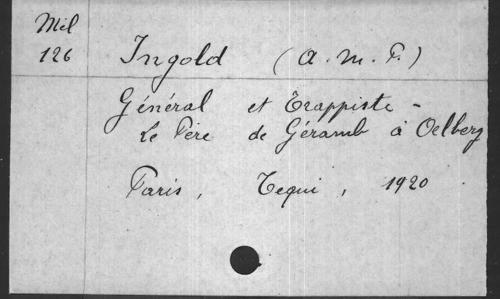 Mil
126
Ingold (A. M. P.)
Général et Trappiste -
Le Père de Géramb à Oelberg
Paris, Tequi, 1920